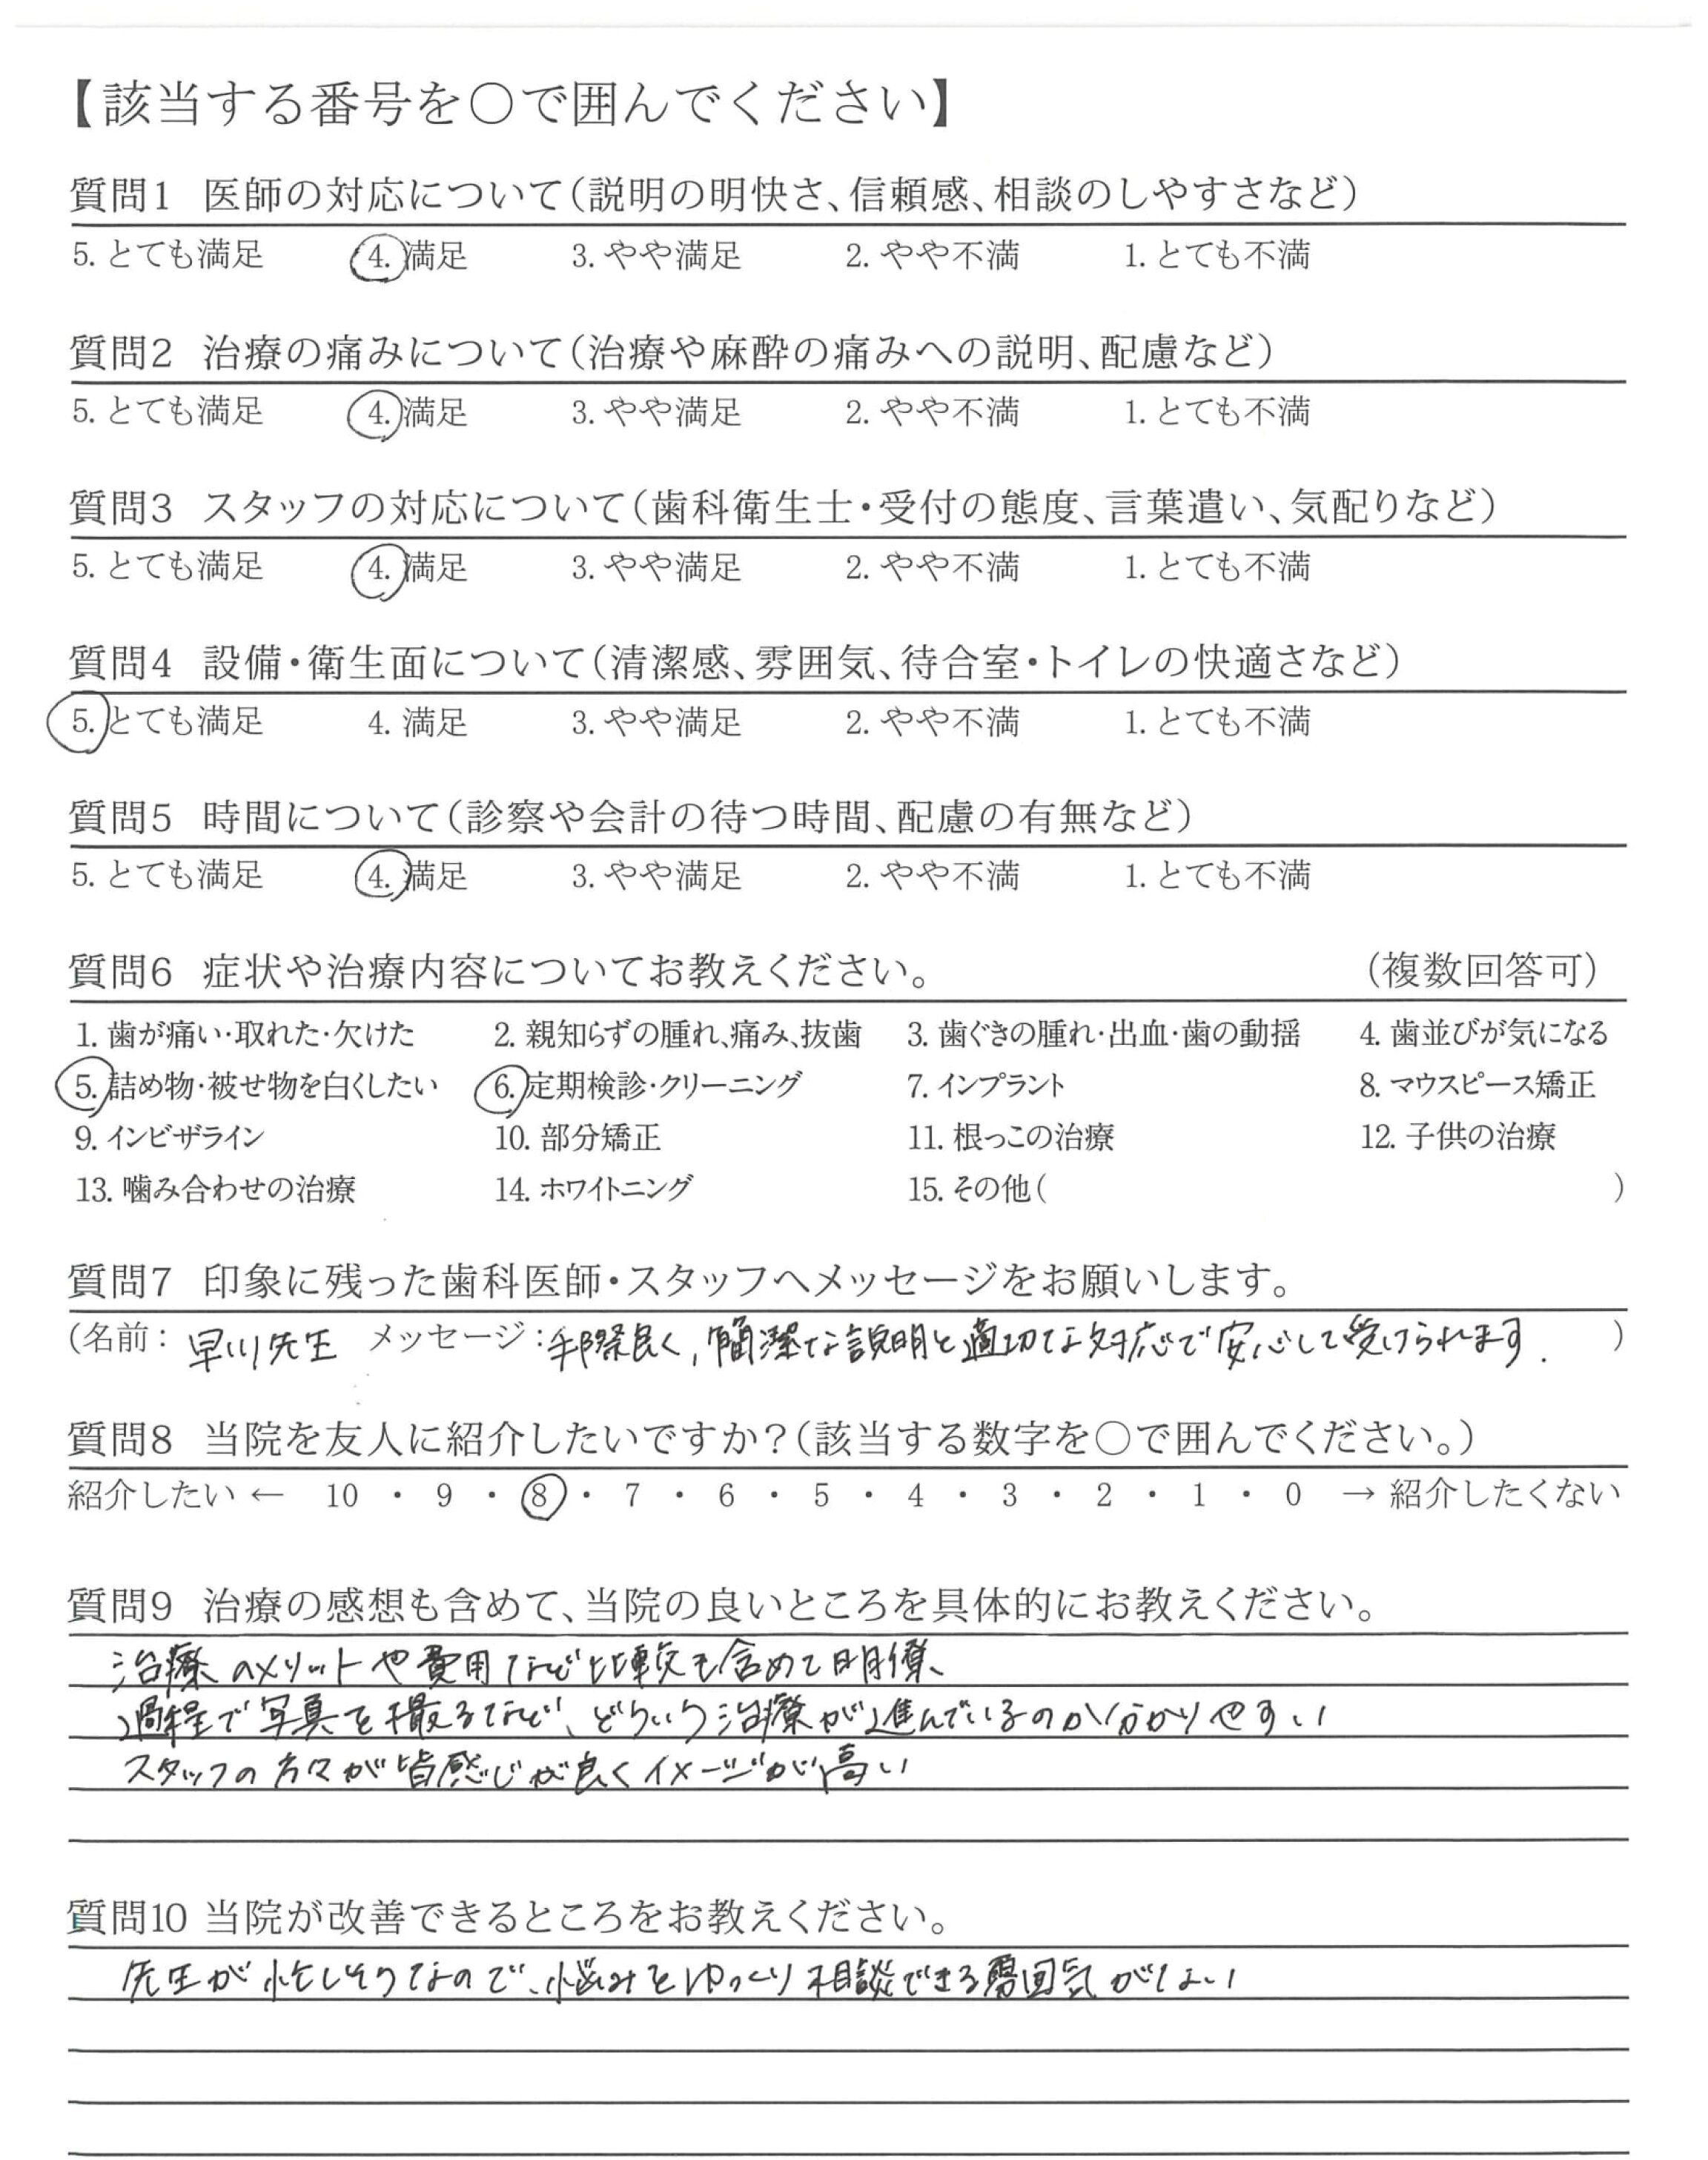 【該当する番号を〇で囲んでください】
質問1 医師の対応について(説明の明快さ、信頼感、相談のしやすさなど)
5. とても満足 4. 満足 3. やや満足 2. やや不満 1. とても不満
質問2 治療の痛みについて(治療や麻酔の痛みへの説明、配慮など)
5. とても満足 4. 満足 3. やや満足 2. やや不満 1. とても不満
質問3 スタッフの対応について(歯科衛生士・受付の態度、言葉遣い、気配りなど)
5. とても満足 4. 満足 3. やや満足 2. やや不満 1. とても不満
質問4 設備・衛生面について(清潔感、雰囲気、待合室・トイレの快適さなど)
5. とても満足 4. 満足 3. やや満足 2. やや不満 1. とても不満
質問5 時間について(診察や会計の待つ時間、配慮の有無など)
5. とても満足 4. 満足 3. やや満足 2. やや不満 1. とても不満
質問6 症状や治療内容についてお教えください。 (複数回答可)
1. 歯が痛い・取れた・欠けた 2. 親知らずの腫れ、痛み、抜歯 3. 歯ぐきの腫れ・出血・歯の動揺 4. 歯並びが気になる
5. 詰め物・被せ物を白くしたい 6. 定期検診・クリーニング 7. インプラント 8. マウスピース矯正
9. インビザライン 10. 部分矯正 11. 根っこの治療 12. 子供の治療
13. 噛み合わせの治療 14. ホワイトニング 15. その他( )
質問7 印象に残った歯科医師・スタッフへメッセージをお願いします。
(名前: 早川先生 メッセージ:手際良く、簡潔な説明と適切な対応で安心して受けられます. )
質問8 当院を友人に紹介したいですか?(該当する数字を〇で囲んでください。)
紹介したい ← 10 ・ 9 ・ 8 ・ 7 ・ 6 ・ 5 ・ 4 ・ 3 ・ 2 ・ 1 ・ 0 → 紹介したくない
質問9 治療の感想も含めて、当院の良いところを具体的にお教えください。
治療のメリットや費用など比較も含めて明僚、
過程で写真を撮るなど、どういう治療が進んでいるのか分かりやすい
スタッフの方々が皆感じが良くイメージが高い
質問10 当院が改善できるところをお教えください。
先生が忙しそうなので、悩みをゆっくり相談できる雰囲気がない